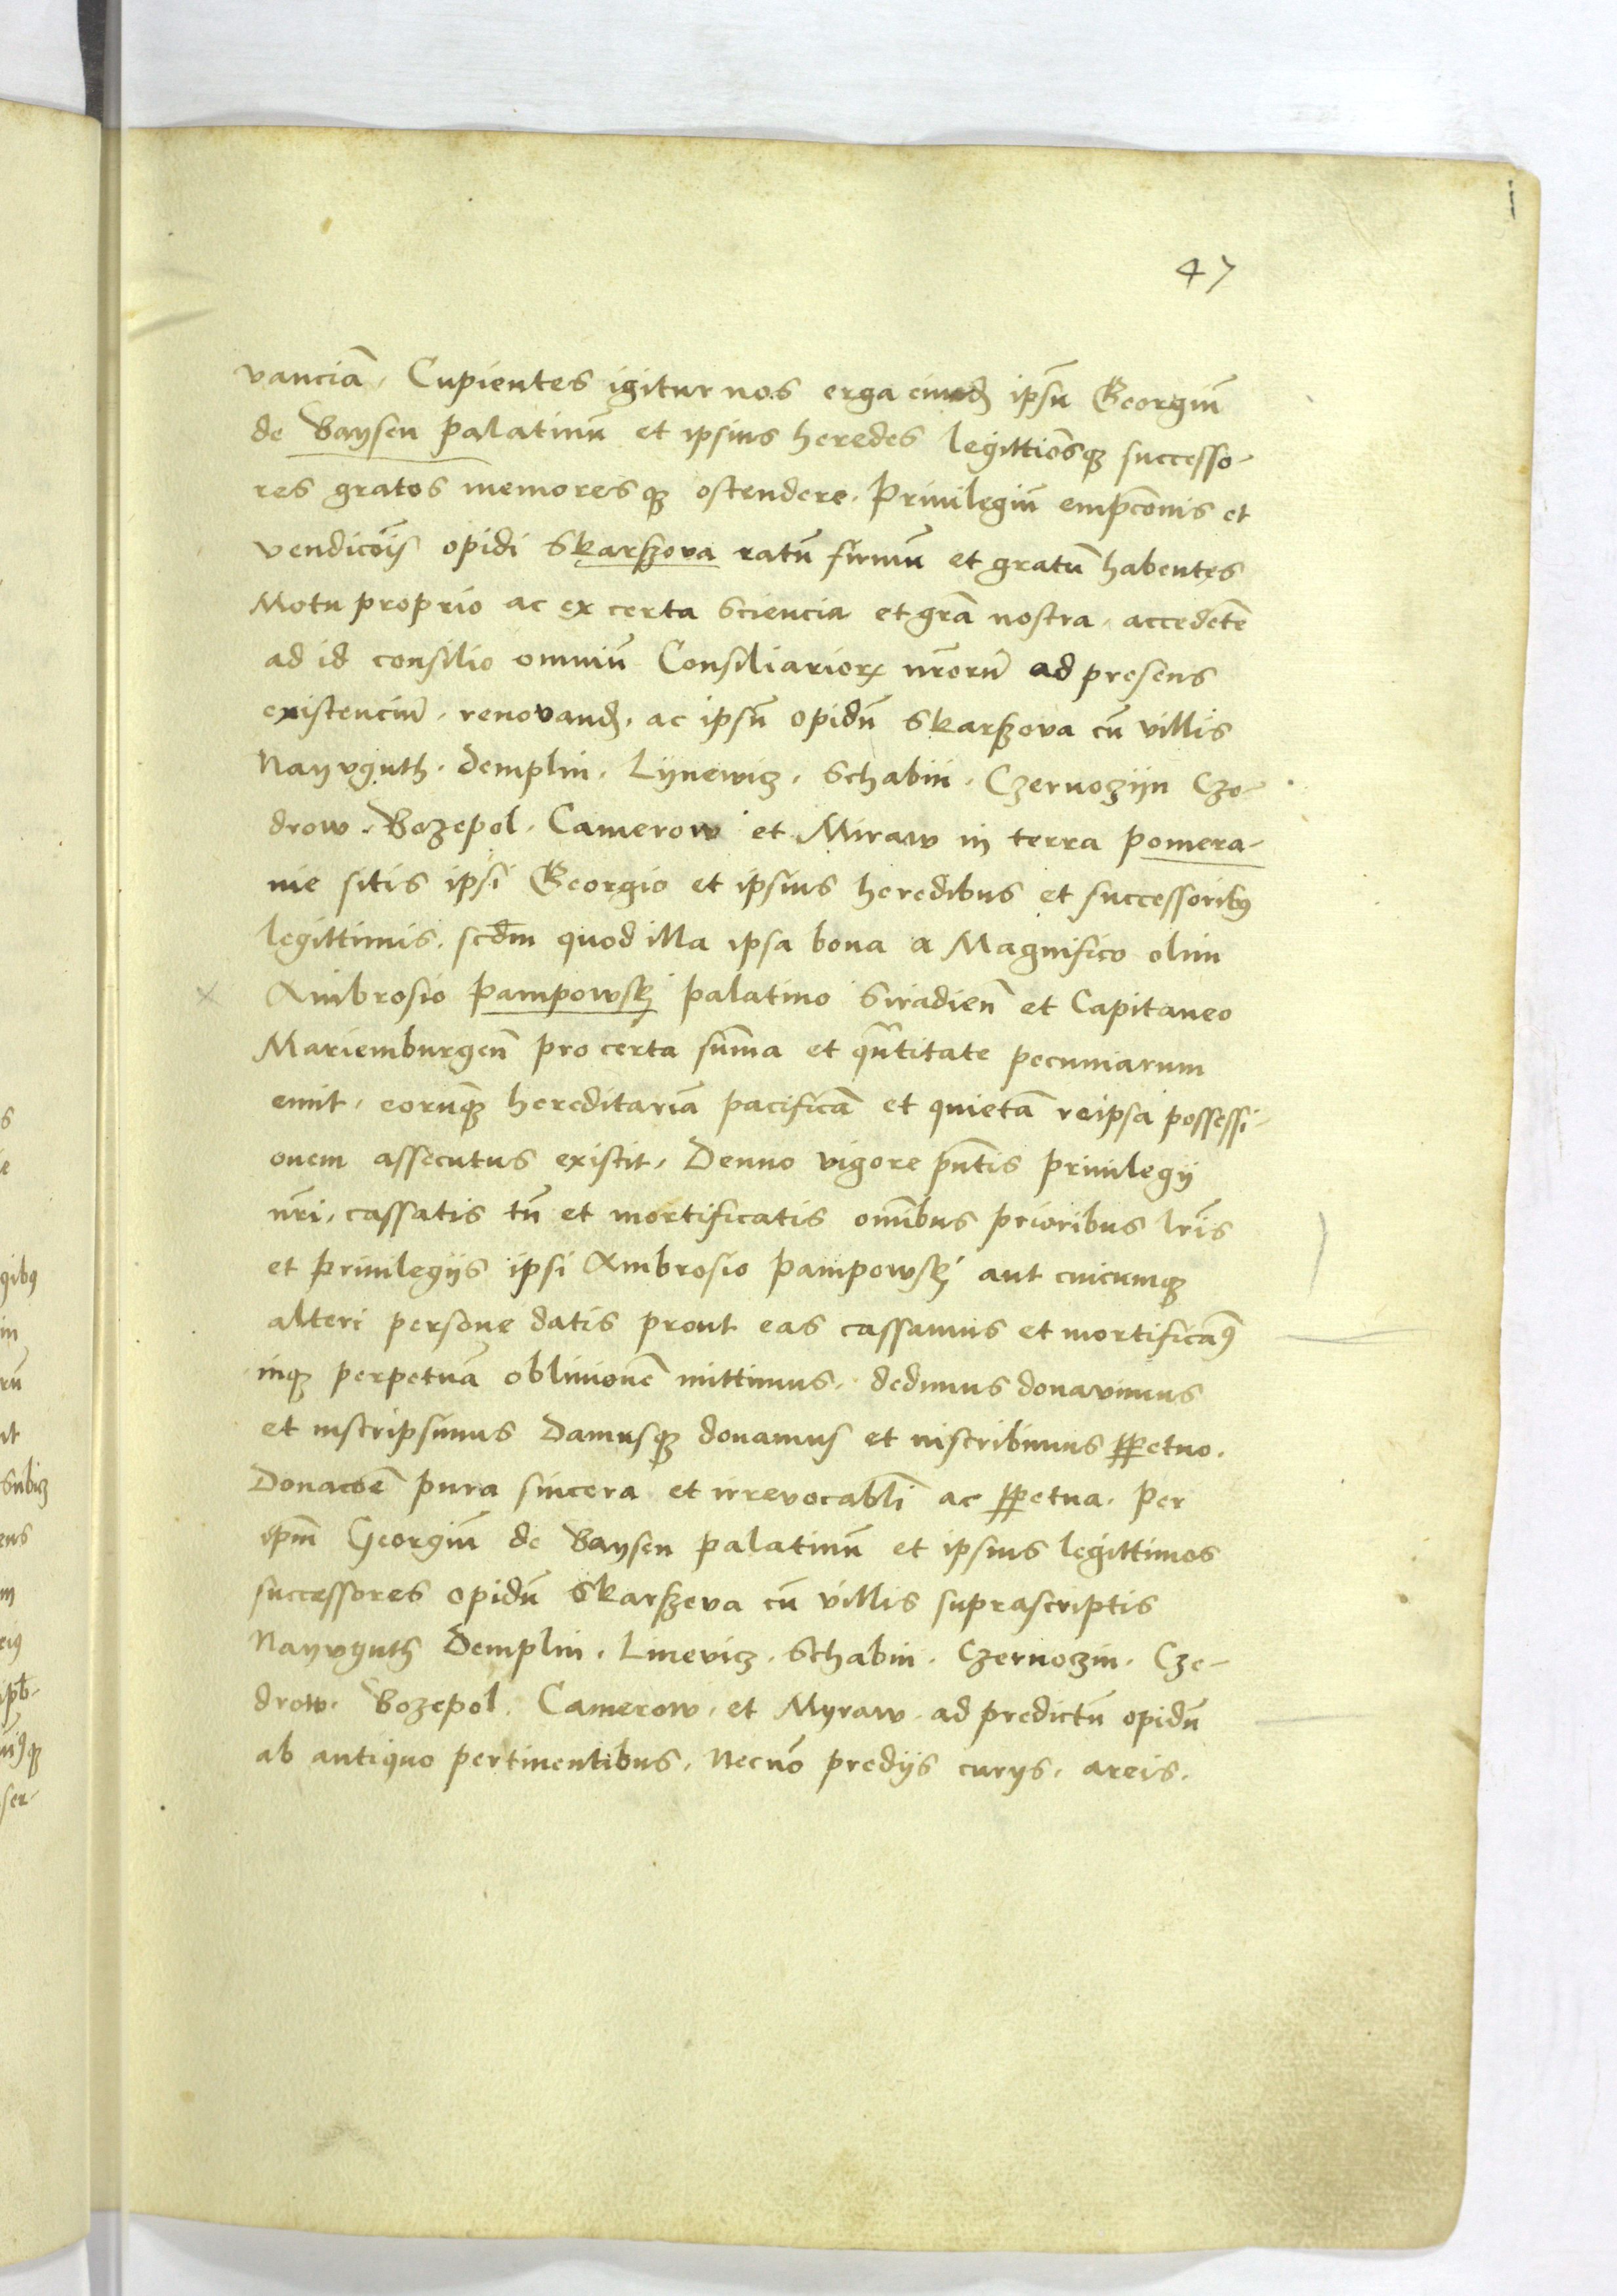 47
vanciā, Cupientes igitur nos erga eiusdē ipsū Georgiū
de Baysen palatinū et ipsius heredes legittīosqꝫ successo-
res gratos memoresqꝫ ostendere. Privilegiū empcōnis et
vendicōis opidi Skarszova ratū firmū et gratū habentes
Motu proprio ac ex certa Sciencia et grā nostra, accedētē
ad id consilio omniū Consiliarioꝝ nr̄orū ad presens
existenciū, renovandū, ac ipsū opidū Skarszova cū villis
Nayvguth. Demplin. Lynewicz. Schabin. Czernoziyn Cze-
drow. Bozepol. Camerow et Miraw in terra pomera-
nie sitis ipsi Georgio et ipsius heredibus et successoribꝰ
legittimis. scdm̄ quod illa ipsa bona a Magnifico olim
Ambrosio Pampowskj palatino Siradien̄ et Capitaneo
Mariemburgen̄ pro certa sum̄a et qn̄titate pecuniarum
emit, eorumqꝫ hereditariā pacificā et quietā reipsa possessi-
onem assecutus existit, Denuo vigore pn̄tis privilegij
nr̄i, cassatis tn̄ et mortificatis om̄ibus prioribus lr̄is
et privilegijs ipsi Ambrosio Pampowskj aut cuicumqꝫ
alteri persone datis prout eas cassamus et mortificamꝰ
inqꝫ perpetuā oblivionē mittimus, dedimus donavimus
et inscripsimus Damusqꝫ donamus et inscribimus ꝑpetuo.
Donacōe pura sincera et irrevocabl̄i ac ꝑpetua. Per
ipm̄ Georgiū de Baysen palatinū et ipsius legittimos
successores opidū Skarszeva cū villis suprascriptis
Nayvguth Demplin. Linevicz. Schabin. Czernozin. Cze-
drow. Bozepol. Camerow, et Myraw, ad predictū opidū
ab antiquo pertinentibus, Necnō predijs curijs, areis.